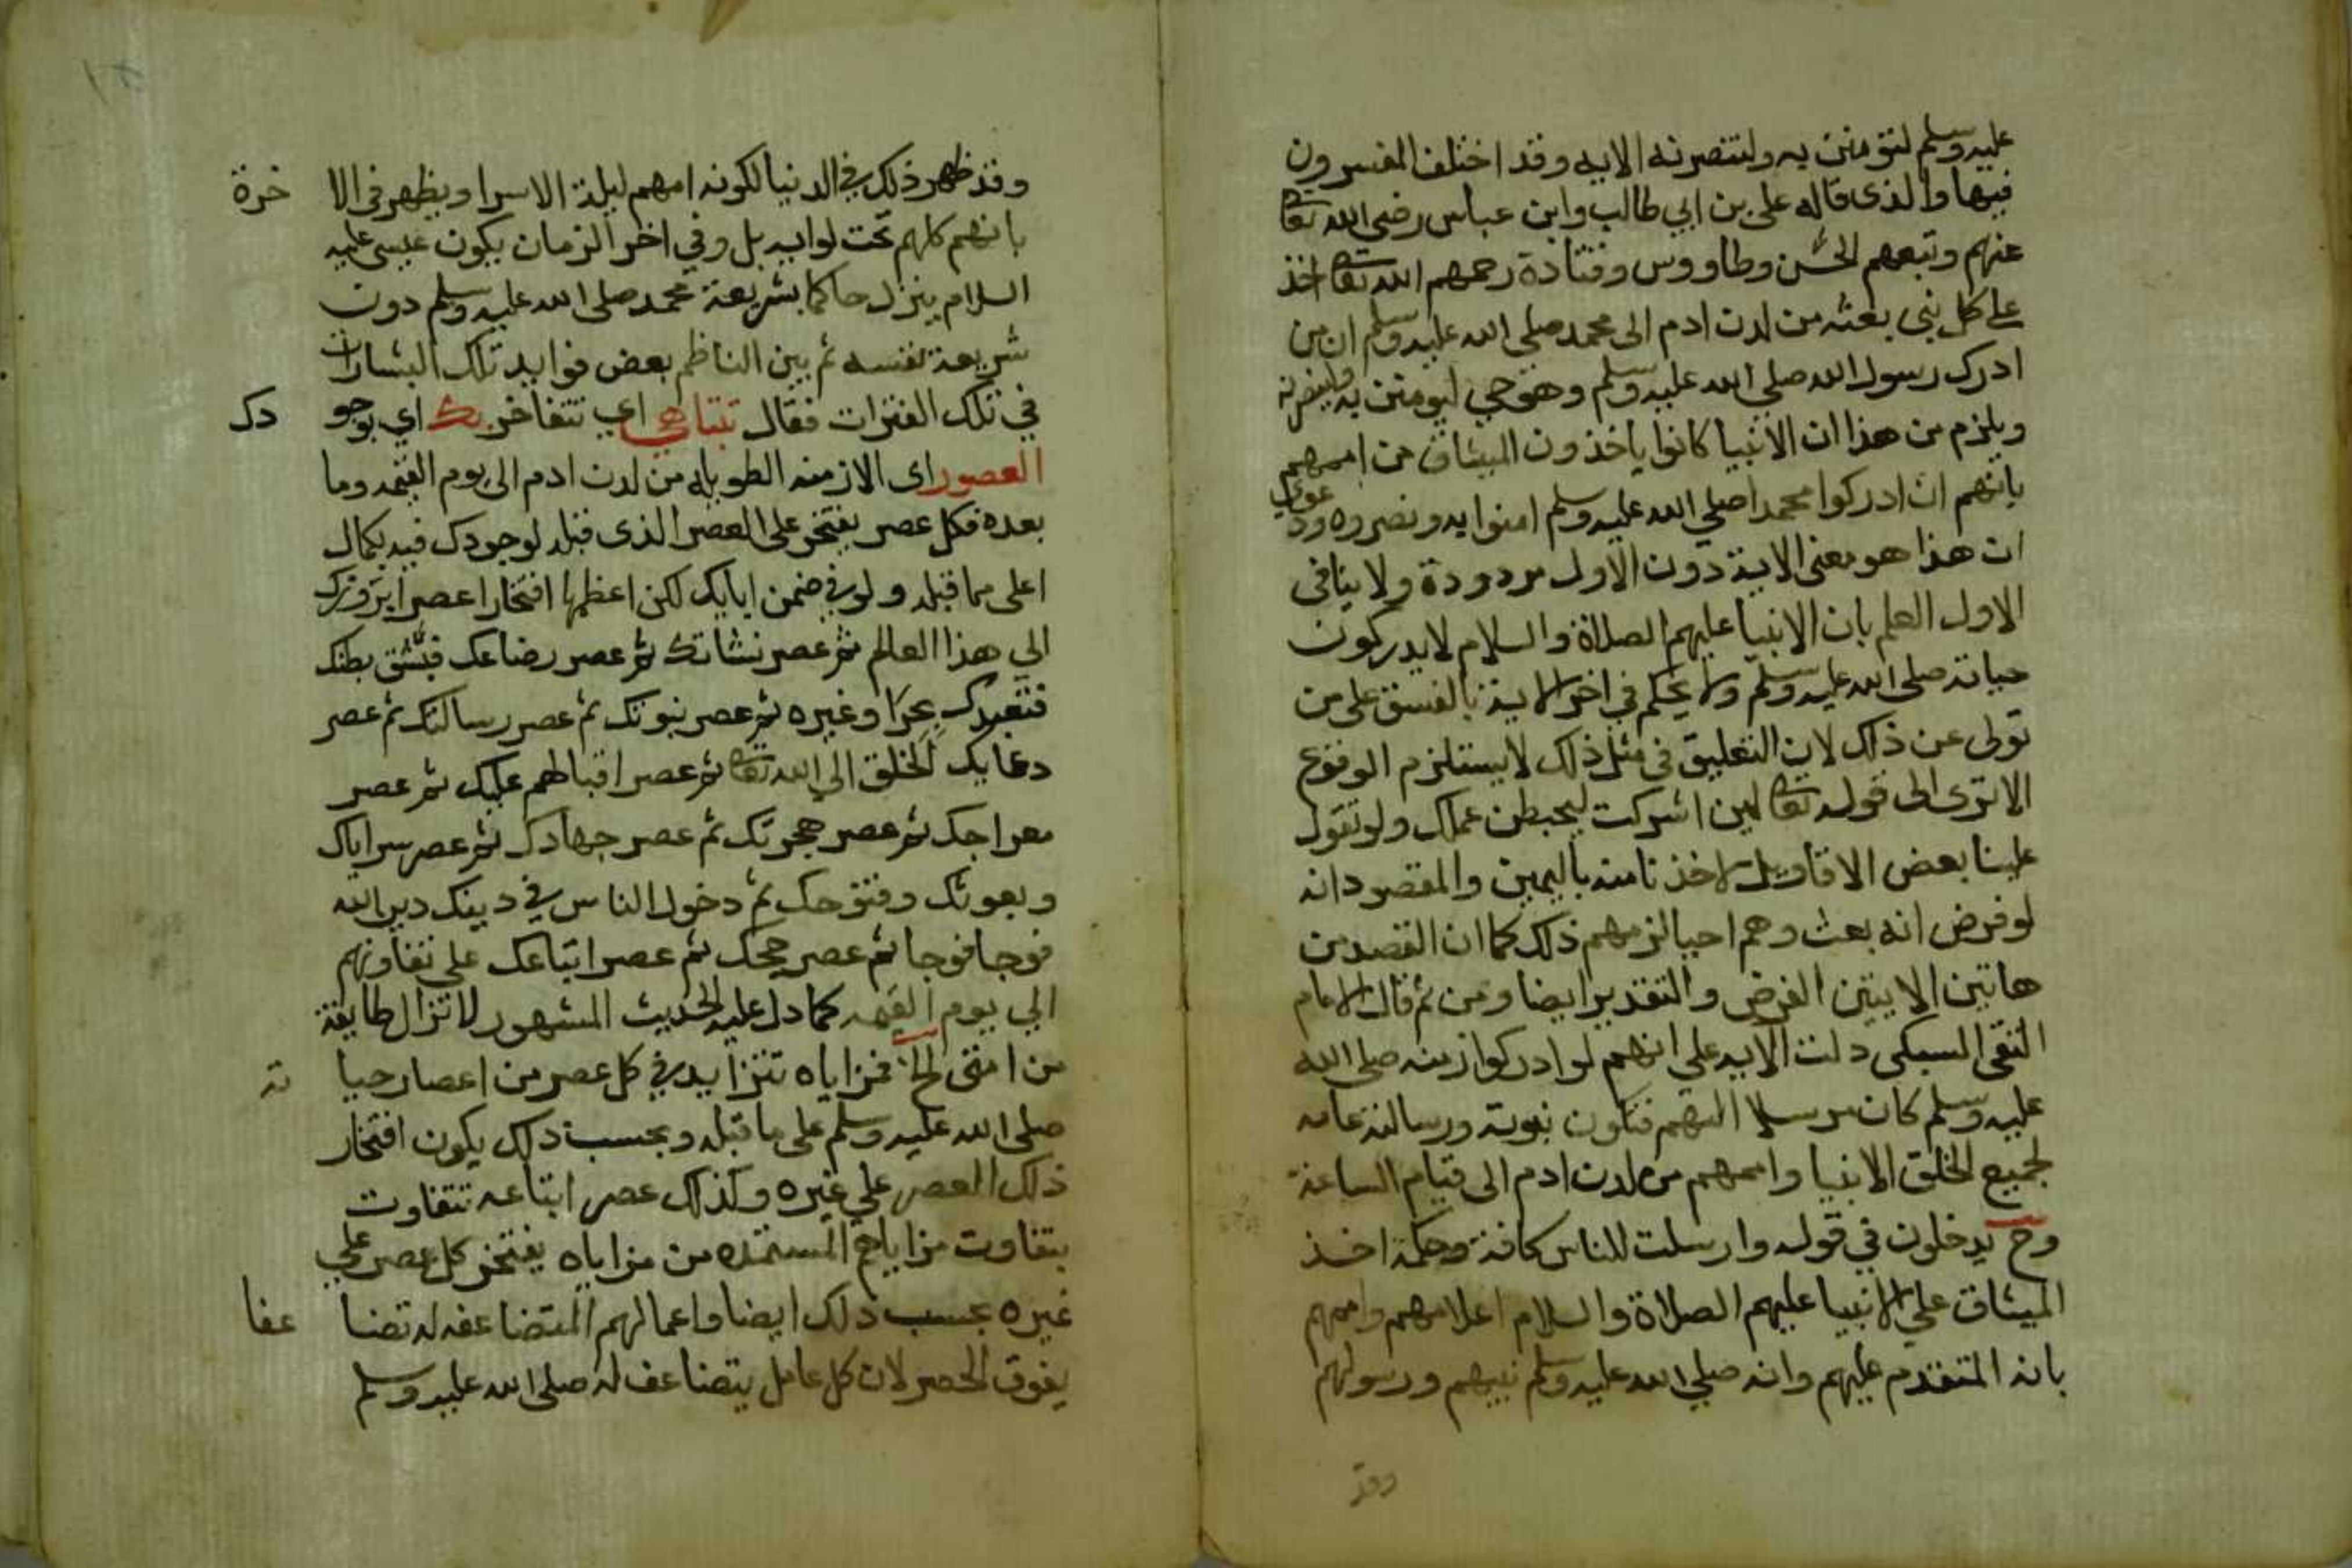 عليه وسلم لتؤمنن به ولتنصرنه الايه وقد اختلف المفسرون
فيها والذى قاله على بن ابي طالب وابن عباس رضى الله تعالى
عنهم وتبعهم الحسن وطاووس وقتادة رحمهم الله تعالى اخذ
على كل نبى بعثه من لدن ادم الى محمد صلى الله عليه وسلم ان من
ادرك رسول الله صلى الله عليه وسلم وهو حي ليومنن به ولينصرنه
ويلزم من هذا ان الانبيا كانوا ياخذون الميثاق من اممهم
بانهم ان ادركوا محمدا صلى الله عليه وسلم امنوا به ونصروه ودعوي
ان هذا هو معنى الاية دون الاول مردودة ولا ينافى
الاول العلم بان الانبيا عليهم الصلاة والسلام لا يدركون
حياته صلى الله عليه وسلم ولا يحكم في اخر الاية بالفسق على من
تولى عن ذلك لان التعليق فى مثل ذلك لا يستلزم الوقوع
الا ترى الى قوله تعالى لين اشركت ليحبطن عملك ولو تقول
علينا بعض الاقاويل لاخذنا منه باليمين والمقصود انه
لو فرض انه بعث وهم احيا لزمهم ذلك كما ان القصد من
هاتين الايتين الفرض والتقدير ايضا ومن ثم قال الامام
التقى السبكى دلت الايه على انهم لو ادركوا زمنه صلى الله
عليه وسلم كان مرسلا اليهم فتكون نبوته ورسالته عامه
لجميع الخلق الانبيا واممهم من لدن ادم الى قيام الساعة
وح يدخلون في قوله وارسلت للناس كافة وحكمة اخذ
الميثاق على الانبيا عليهم الصلاة والسلام اعلامهم واممهم
بانه المتقدم عليهم وانه صلي الله عليه وسلم نبيهم ورسولهم
وقد
وقد ظهر ذلك في الدنيا لكونه امهم ليلة الاسرا ويظهر فى الا خرة
بانهم كلهم تحت لوايه بل وفي اخر الزمان يكون عيسى عليه
السلام ينزل حاكما بشريعة محمد صلى الله عليه وسلم دون
شريعة نفسه ثم بين الناظم بعض فوايد تلك البشارات
في تلك الفترات فقال تتباهي اي تتفاخر بك اي بوجو دك
العصور اى الازمنه الطويله من لدن ادم الى يوم القيمه وما
بعده فكل عصر يفتخر على العصر الذى قبله لوجودك فيه بكمال
اعلى مما قبله ولو في ضمن ابايك لكن اعظمها افتخارا عصر ابروزك
الي هذا العالم ثم عصر نشاتك ثم عصر رضاعك فشق بطنك
فتعبدك بحرا وغيره ثم عصر نبوتك ثم عصر رسالتك ثم عصر
دعايك الخلق الي الله تعالى ثم عصر اقبالهم عليك ثم عصر
معراجك ثم عصر هجرتك ثم عصر جهادك ثم عصر سراياك
وبعوثك وفتوحك ثم دخول الناس في دينك دين الله
فوجا فوجا ثم عصر حجك ثم عصر اتباعك على تفاوتهم
الي يوم القيمه كما دل عليه الحديث المشهور لا تزال طايفة
من امتى الخ فمزاياه تتزايد في كل عصر من اعصار حيا ته
صلى الله عليه وسلم على ما قبله وبحسب ذلك يكون افتخار
ذلك العصر علي غيره وكذلك عصر اتباعه تتفاوت
بتفاوت مزاياهم المستمده من مزاياه يفتخر كل عصر علي
غيره بحسب ذلك ايضا واعمالهم المتضاعفه له تضا عفا
يفوق الحصر لان كل عامل يتضاعف له صلى الله عليه وسلم